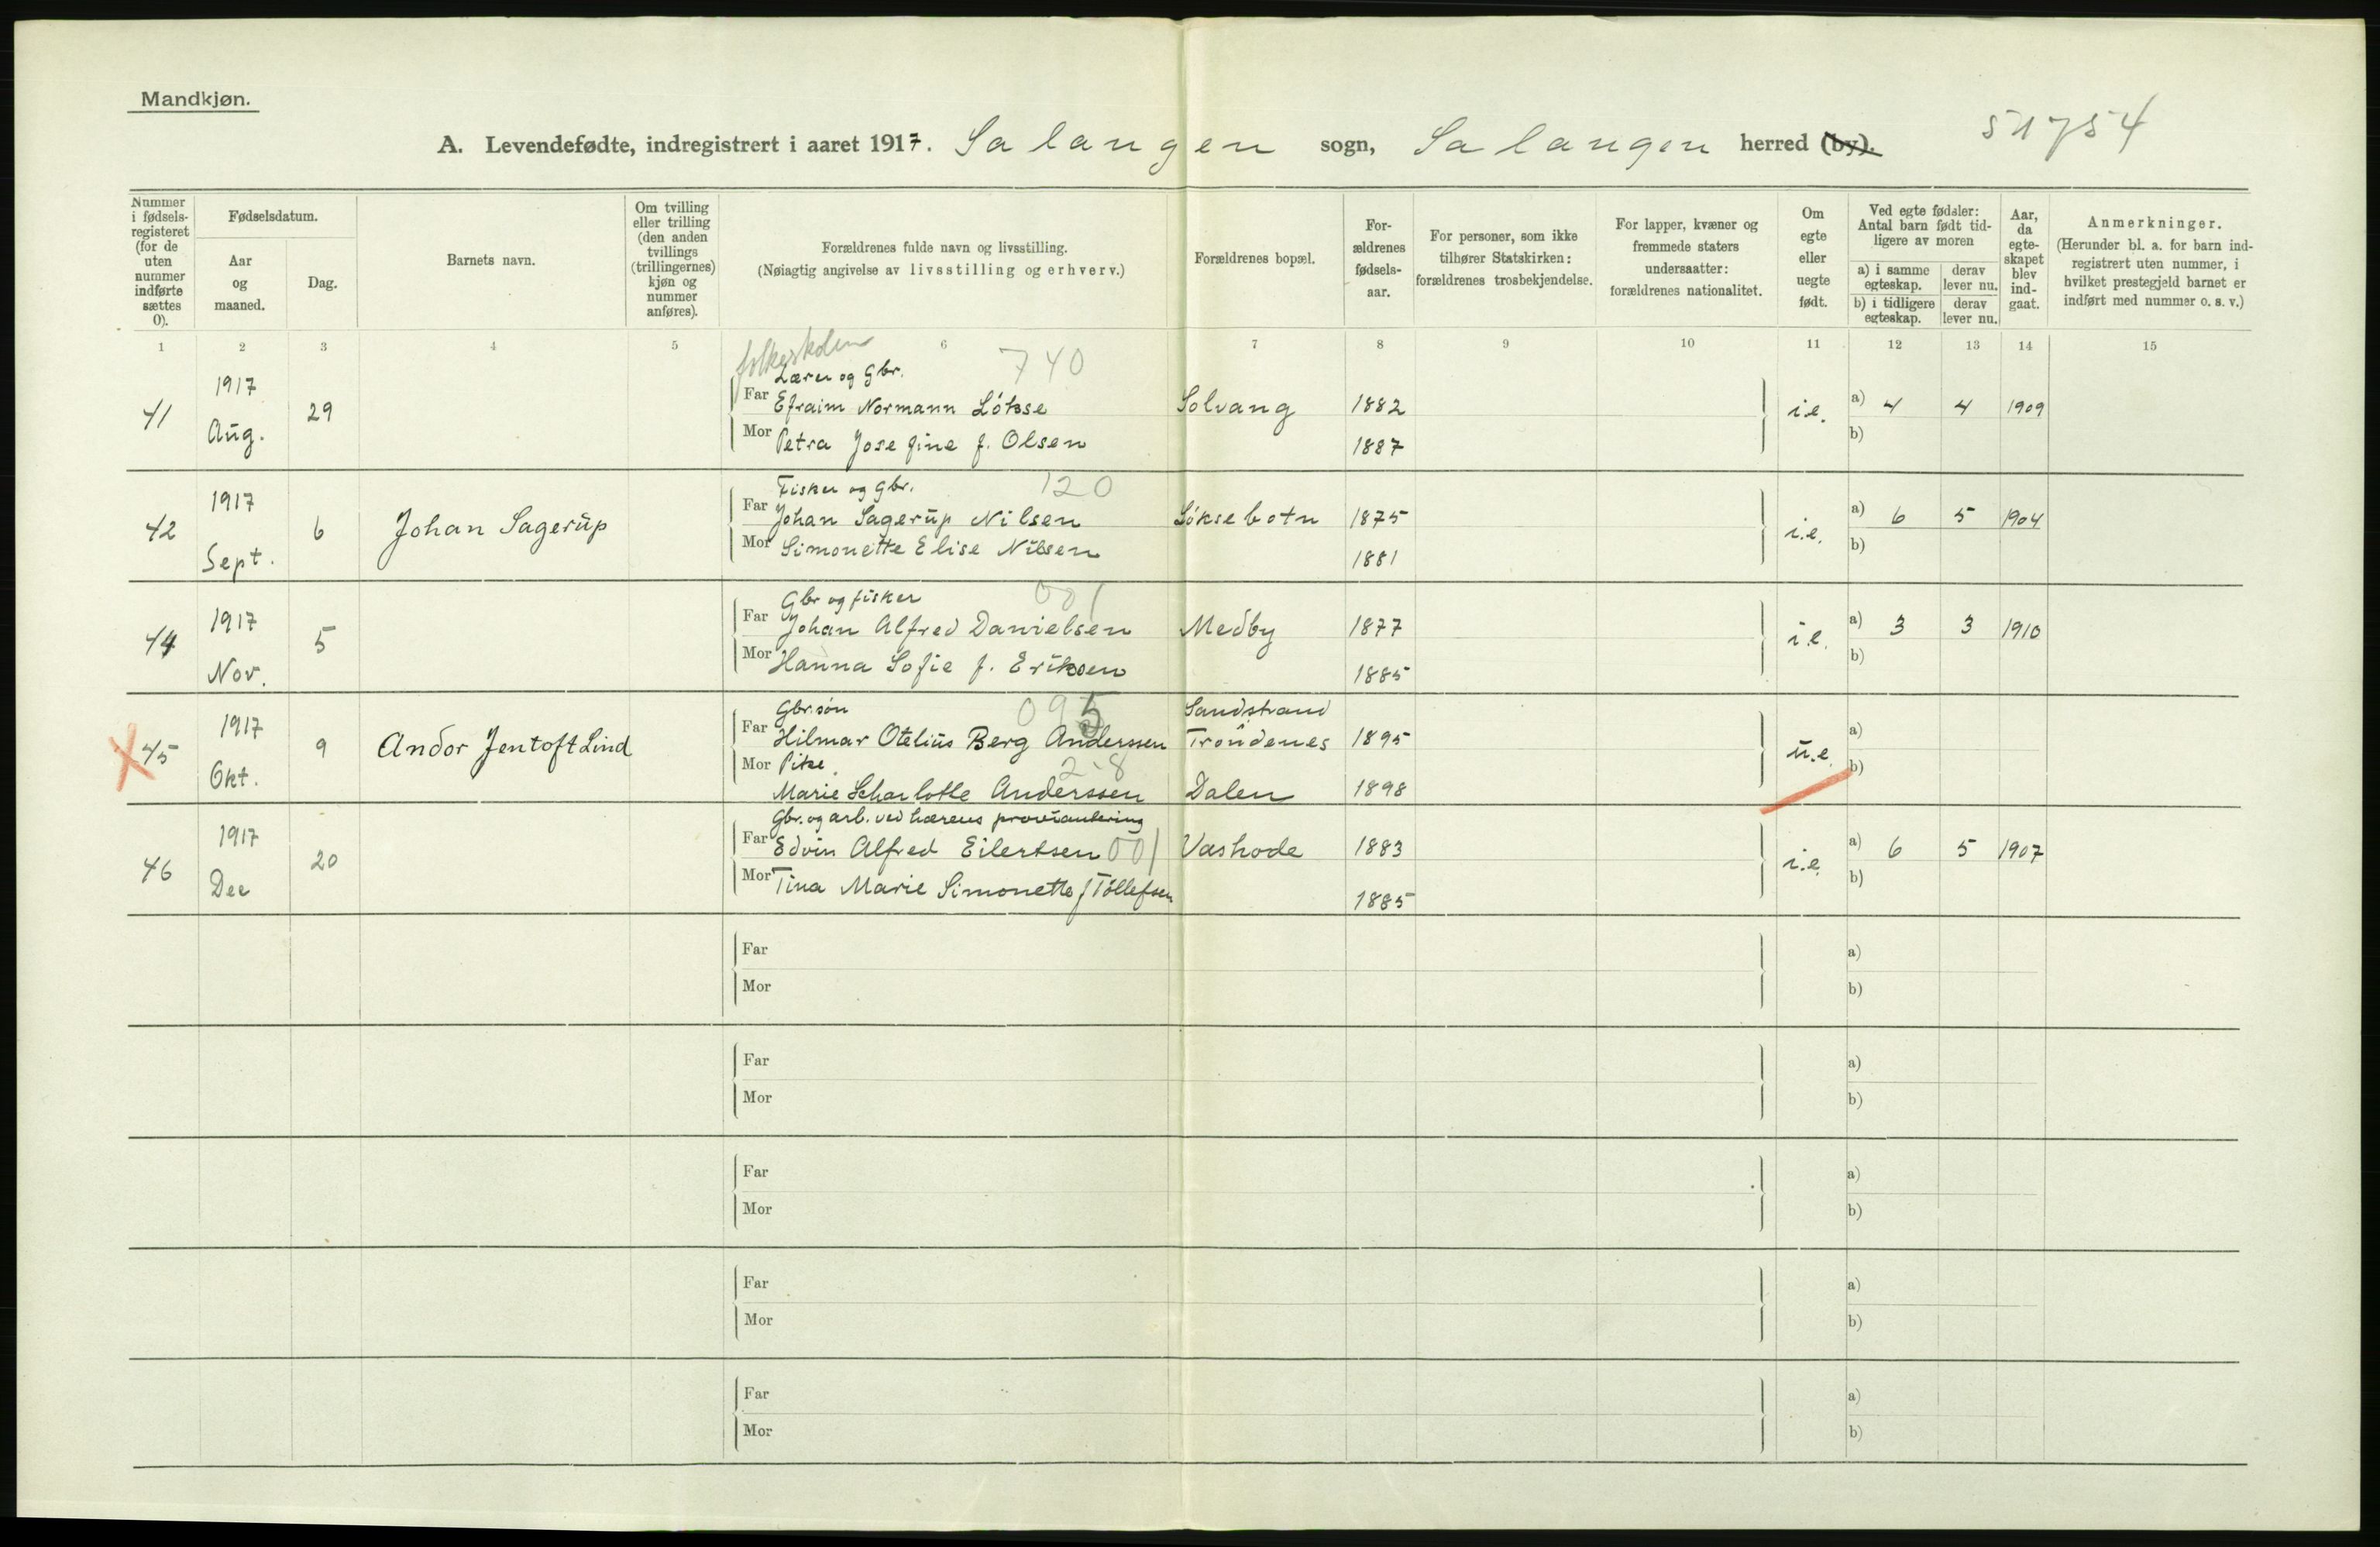 Mandkjøn.
A. Levendefødte, indregistrert i aaret 1917. Salangen sogn, Salangen herred (by). 51754
Nummer i fødsels-registeret (for de uten nummer indførte sættes 0).
Fødselsdatum.
Aar og maaned.
Dag.
Barnets navn.
Om tvilling eller trilling (den anden tvillings (trillingernes) kjøn og nummer anføres).
Forældrenes fulde navn og livsstilling.
(Nøiagtig angivelse av livsstilling og erhverv.)
Forældrenes bopæl.
For-ældrenes fødsels-aar.
For personer, som ikke tilhører Statskirken: forældrenes trosbekjendelse.
For lapper, kvæner og fremmede staters undersaatter: forældrenes nationalitet.
Om egte eller uegte født.
Ved egte fødsler: Antal barn født tid-ligere av moren
a) i samme egteskap.
derav lever nu.
b) i tidligere egteskap.
derav lever nu.
Aar, da egte-skapet blev ind-gaat.
Anmerkninger.
(Herunder bl. a. for barn ind-registrert uten nummer, i hvilket prestegjeld barnet er indført med nummer o. s. v.)
1 2 3 4 5 6 7 8 9 10 11 12 13 14 15
folkeskolen
Lærer og Gbr. 740
41 1917 Aug. 29 Far Efraim Normann Løkse Solvang 1882 i.e. a) 4 4 1909
Mor Petra Josefine f. Olsen 1887 b)
Fisker og Gbr. 120
42 1917 Sept. 6 Johan Sagerup Far Johan Sagerup Nilsen Løksebotn 1875 i.e. a) 6 5 1904
Mor Simonette Elise Nilsen 1881 b)
Gbr og fisker 001
44 1917 Nov. 5 Far Johan Alfred Danielsen Medby 1877 i.e. a) 3 3 1910
Mor Hanna Sofie f. Eriksen 1885 b)
Gbr.søn 095 Sandstrand
X 45 1917 Okt. 9 Andor Jentoft Lind Far Hilmar Otelius Berg Anderssen Trondenes 1895 u.e. a)
Mor Pike 2-8 b)
Marie Scharlotte Anderssen Dalen 1898
Gbr. og arb. ved hærens proviantering
46 1917 Dec 20 Far Edvin Alfred Eilertsen 001 Vashode 1883 i.e. a) 6 5 1907
Mor Tina Marie Simonette f Tollefsen 1885 b)
Far a)
Mor b)
Far a)
Mor b)
Far a)
Mor b)
Far a)
Mor b)
Far a)
Mor b)